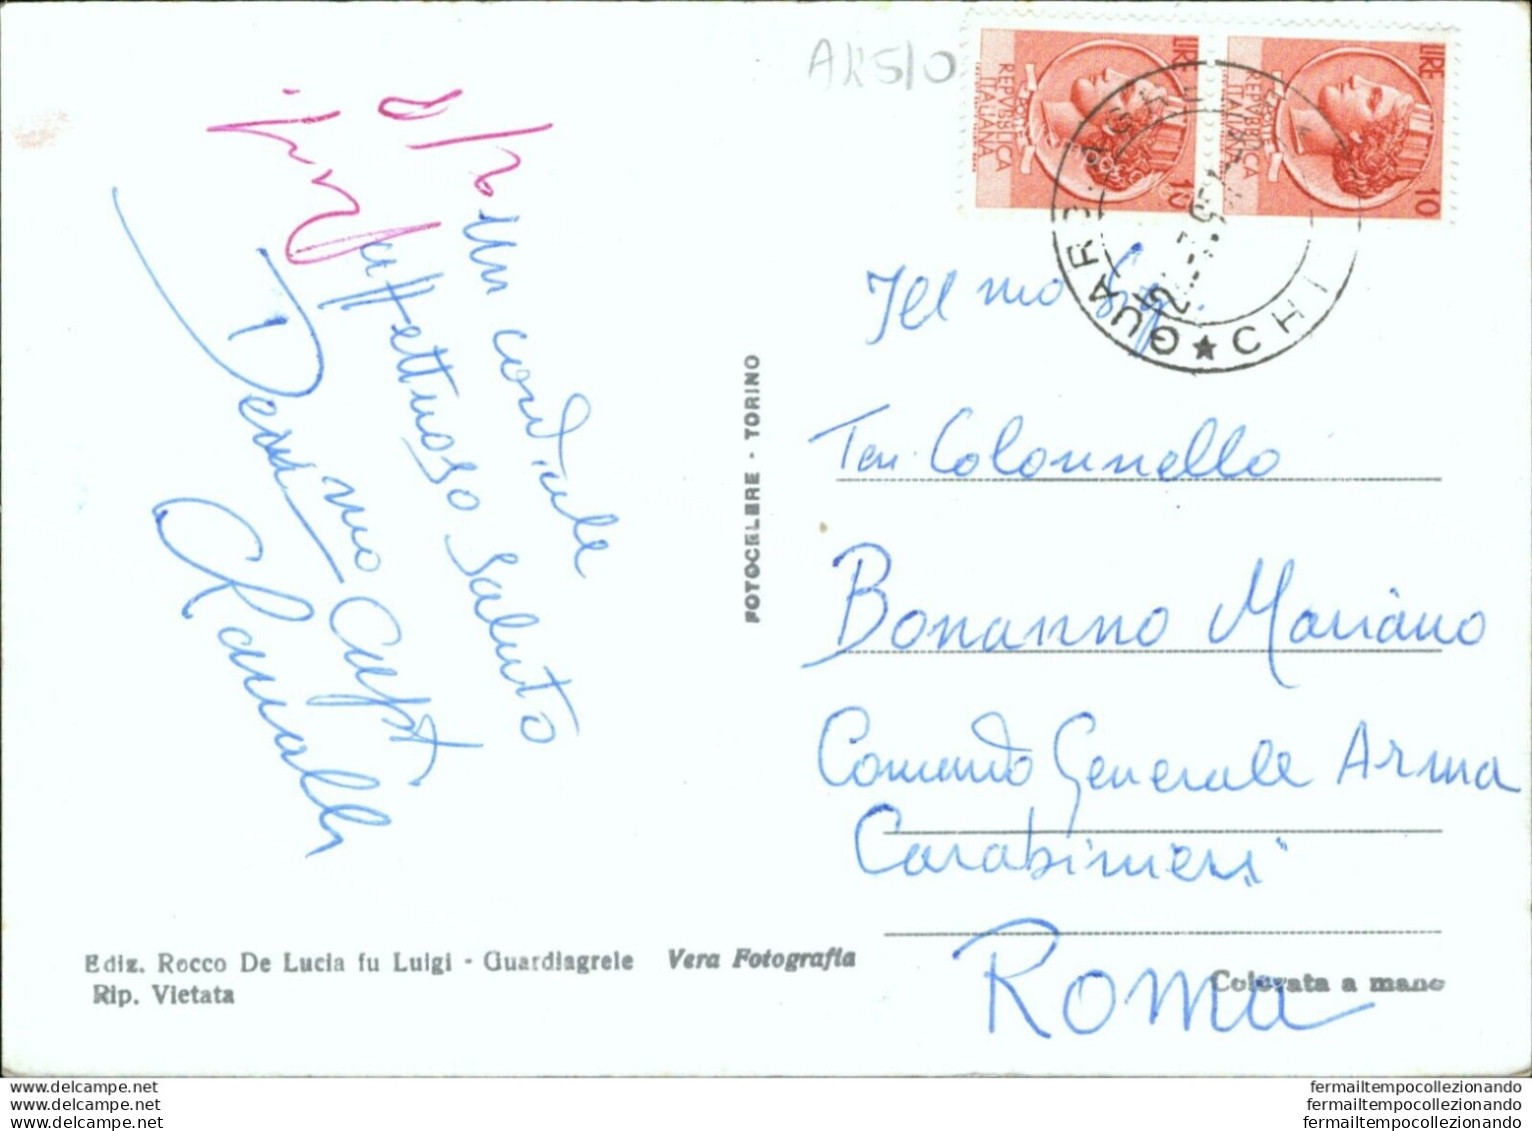 AR510
LIRE
REPVBBLICA
ITALIANA
10
LIRE
REPVBBLICA
ITALIANA
10
GUARDIAGRELE
★ CHI
Un cordiale
affettuoso saluto
Dev.mo Cap.
Ill mo Sig.
Ten. Colonnello
Bonanno Mariano
Comando Generale Arma
Carabinieri
Roma
FOTOCELERE - TORINO
Ediz. Rocco De Lucia fu Luigi - Guardiagrele Vera Fotografia
Rip. Vietata
Colorata a mano
www.delcampe.net
www.delcampe.net
www.delcampe.net
fermailtempocollezionando
fermailtempocollezionando
fermailtempocollezionando